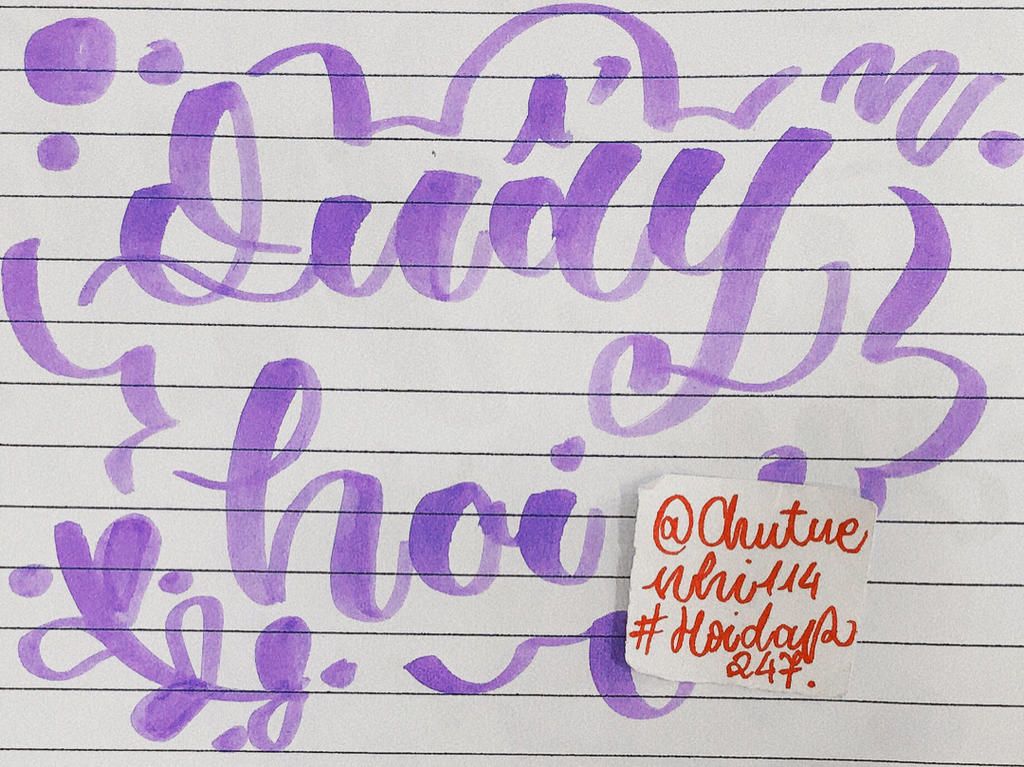 Quẩy
hoi
@Chutue
nhi114
#Hoidap
247.